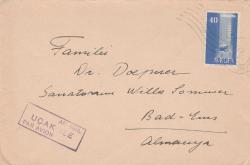 40
Familie
Dr. Doepner
Sanatorium Villa Sommer
Bad-Ems
Almanya
AIR MAIL
UÇAK İLE
PAR AVION